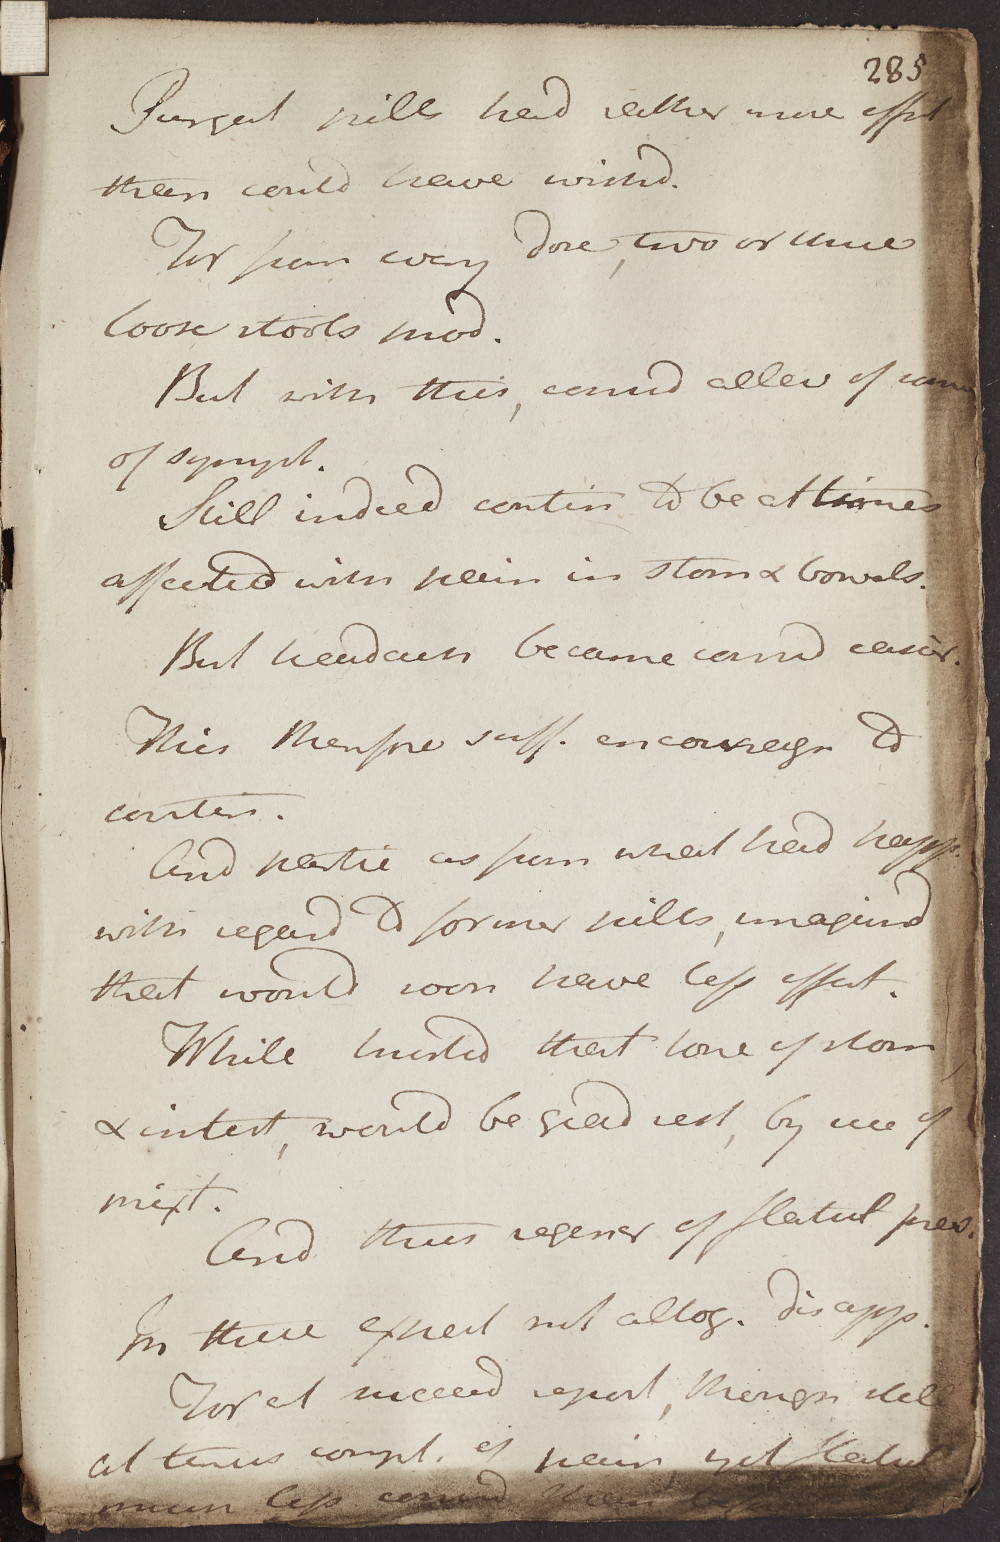 285
Purgat pills had rather more effect
than could have wishd.
For from every dose, two or three
loose stools prod.
But with this, consid allev of some
of sympt.
Still indeed contin to be at times
affected with pain in stom & bowels.
But headach became consid easier.
This therefore suff. encouragn to
contin.
And partic as from what had happ.
with regard to former pills, imagind
that would soon have less effect.
While trusted that tone of stom
& intest, would be grad rest, by use of
mixt.
And thus regener of flatul prev.
In these expect not altog. disapp.
For at succeed report, though still
at times compl. of pain, yet flatul
much less consid than